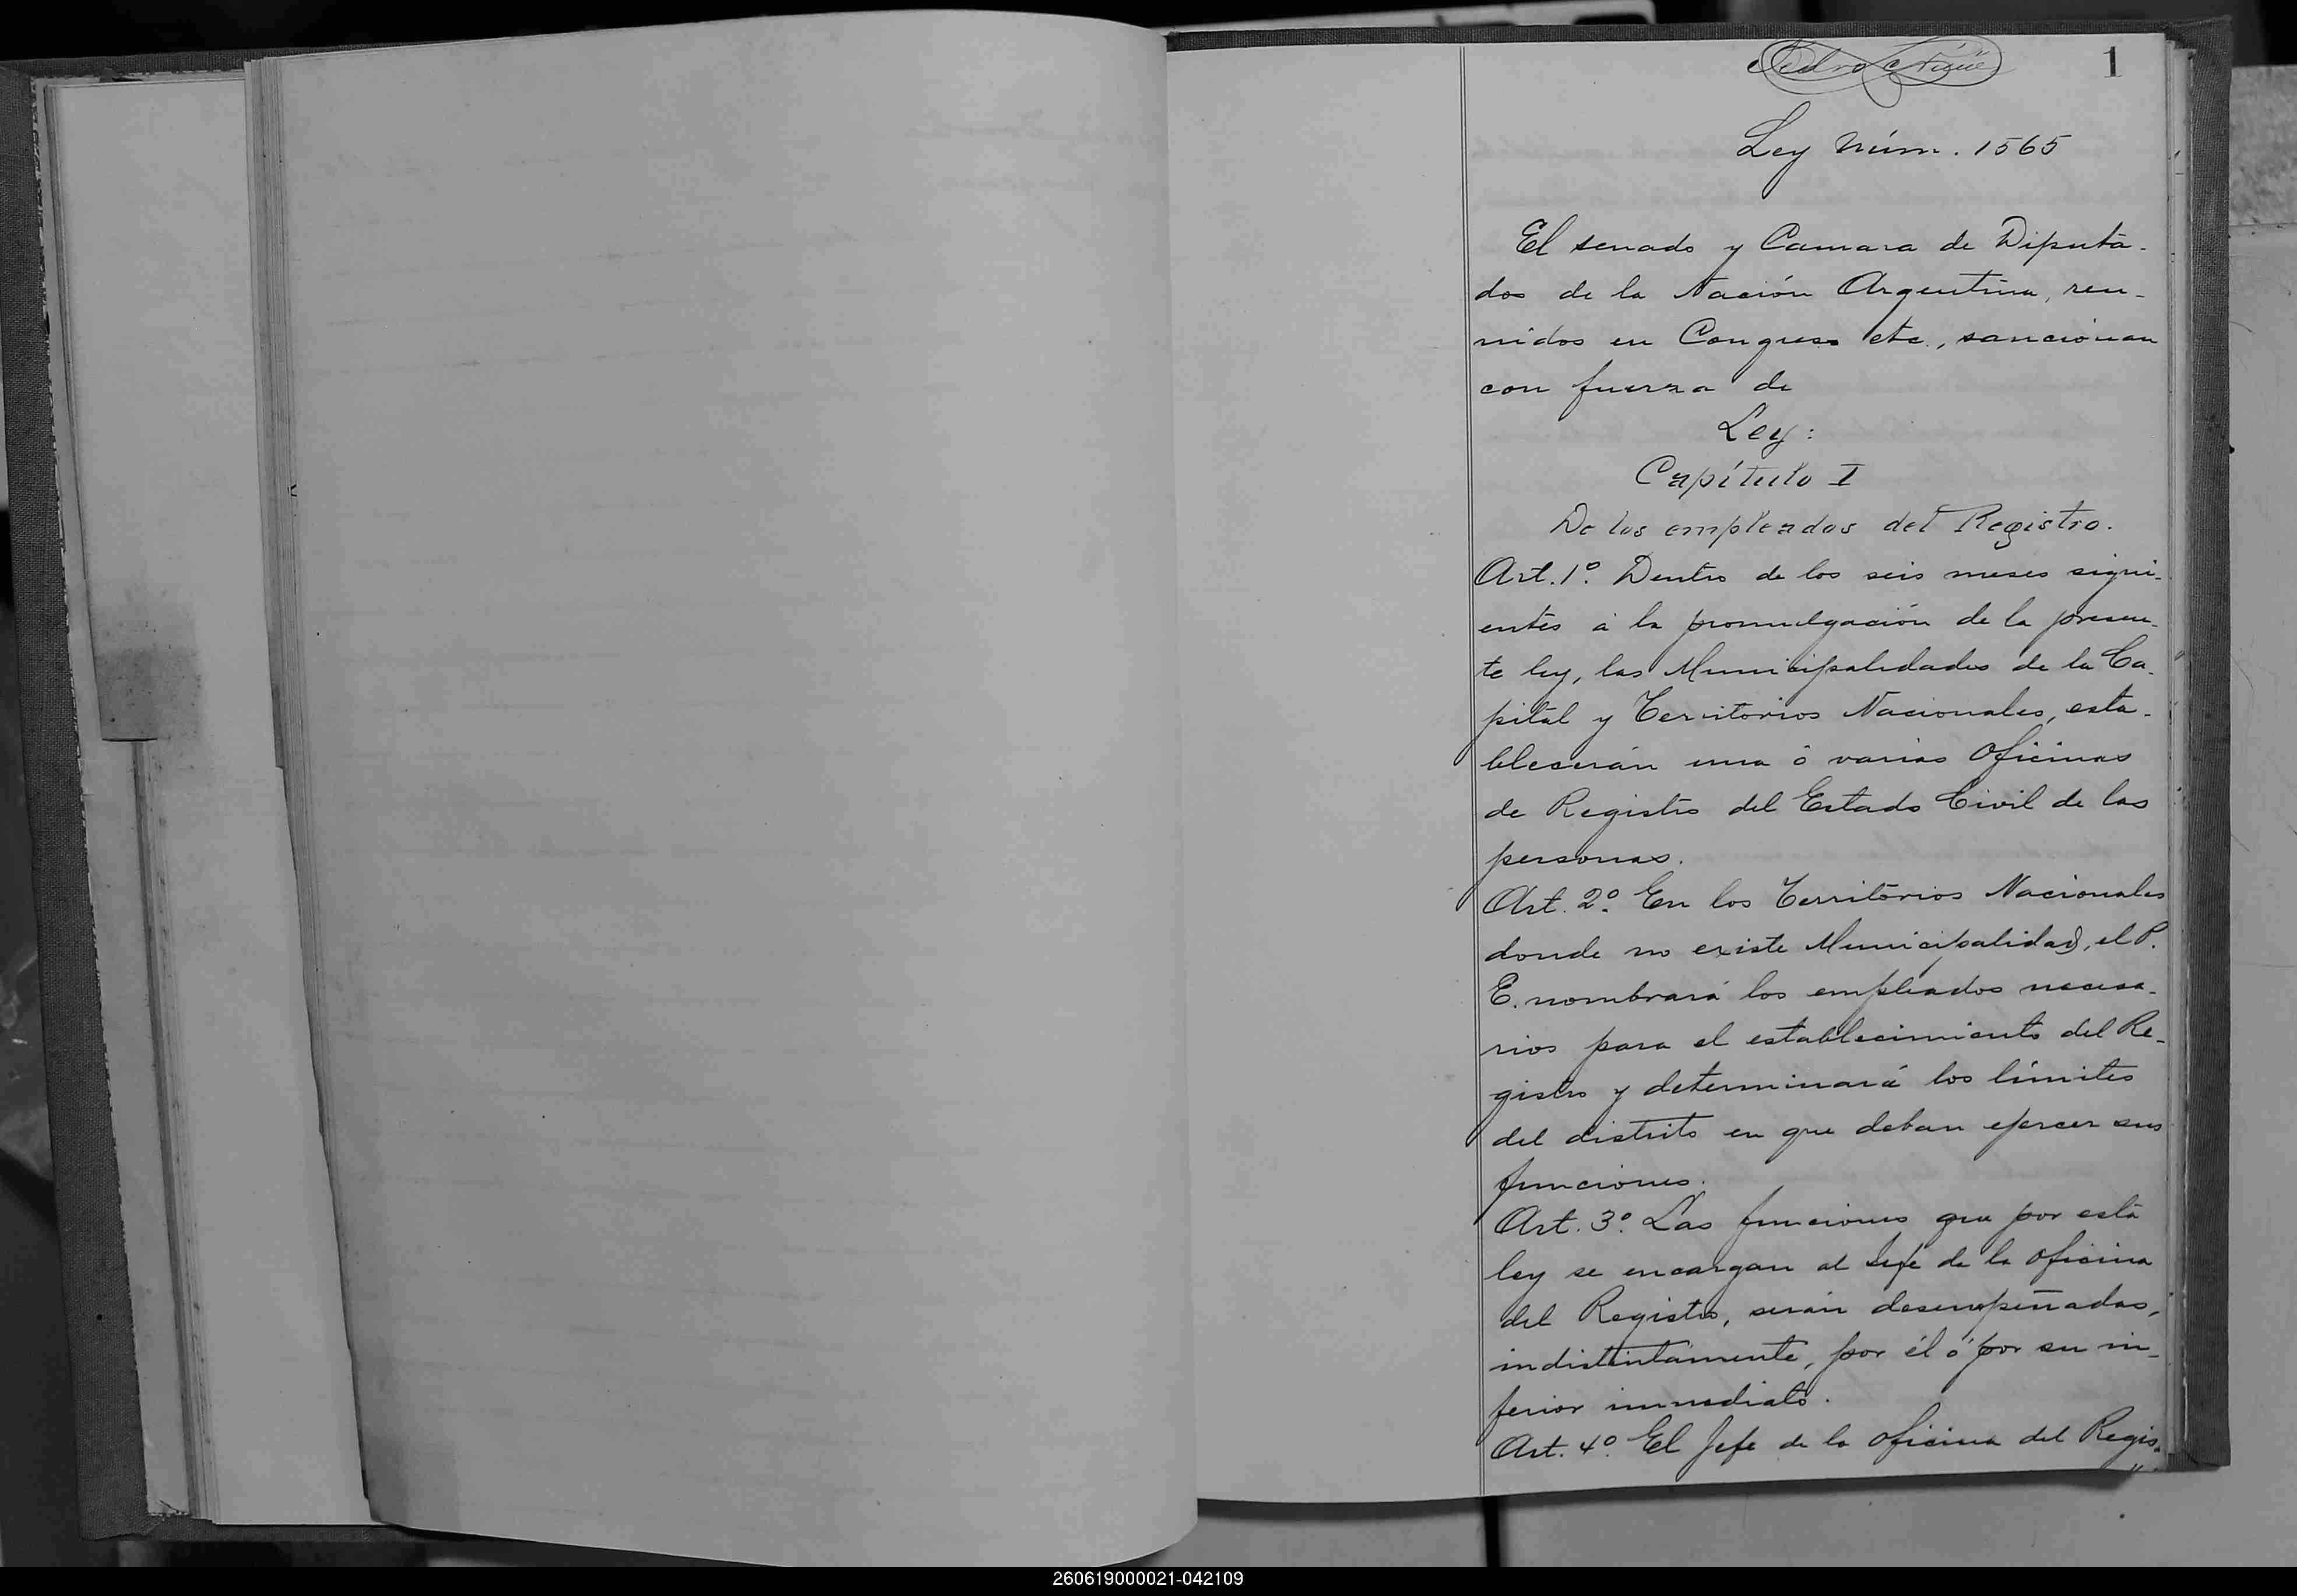 1
Ley Núm. 1565
El senado y Camara de Diputa-
dos de la Nación Argentina, reu-
nidos en Congreso etc., sancionan
con fuerza de
Ley:
Capítulo I
De los empleados del Registro.
Art. 1º. Dentro de los seis meses sigui-
entes á la promulgación de la presen-
te ley, las Municipalidades de la Ca-
pital y Territorios Nacionales, esta-
blecerán una ó varias Oficinas
de Registro del Estado Civil de las
personas.
Art. 2º. En los Territorios Nacionales
donde no existe Municipalidad, el P.
E. nombrará los empleados necesa-
rios para el establecimiento del Re-
gistro y determinará los límites
del distrito en que deban ejercer sus
funciones.
Art. 3º. Las funciones que por esta
ley se encargan al Jefe de la Oficina
del Registro, serán desempeñadas,
indistintamente, por él ó por su in-
ferior inmediato.
Art. 4º. El Jefe de la Oficina del Regis-
260619000021-042109